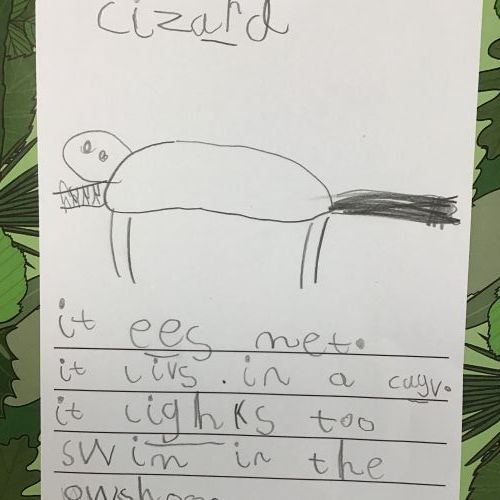 lizard
it ees met.
it livs . in a cayv.
it lighks too
swim in the